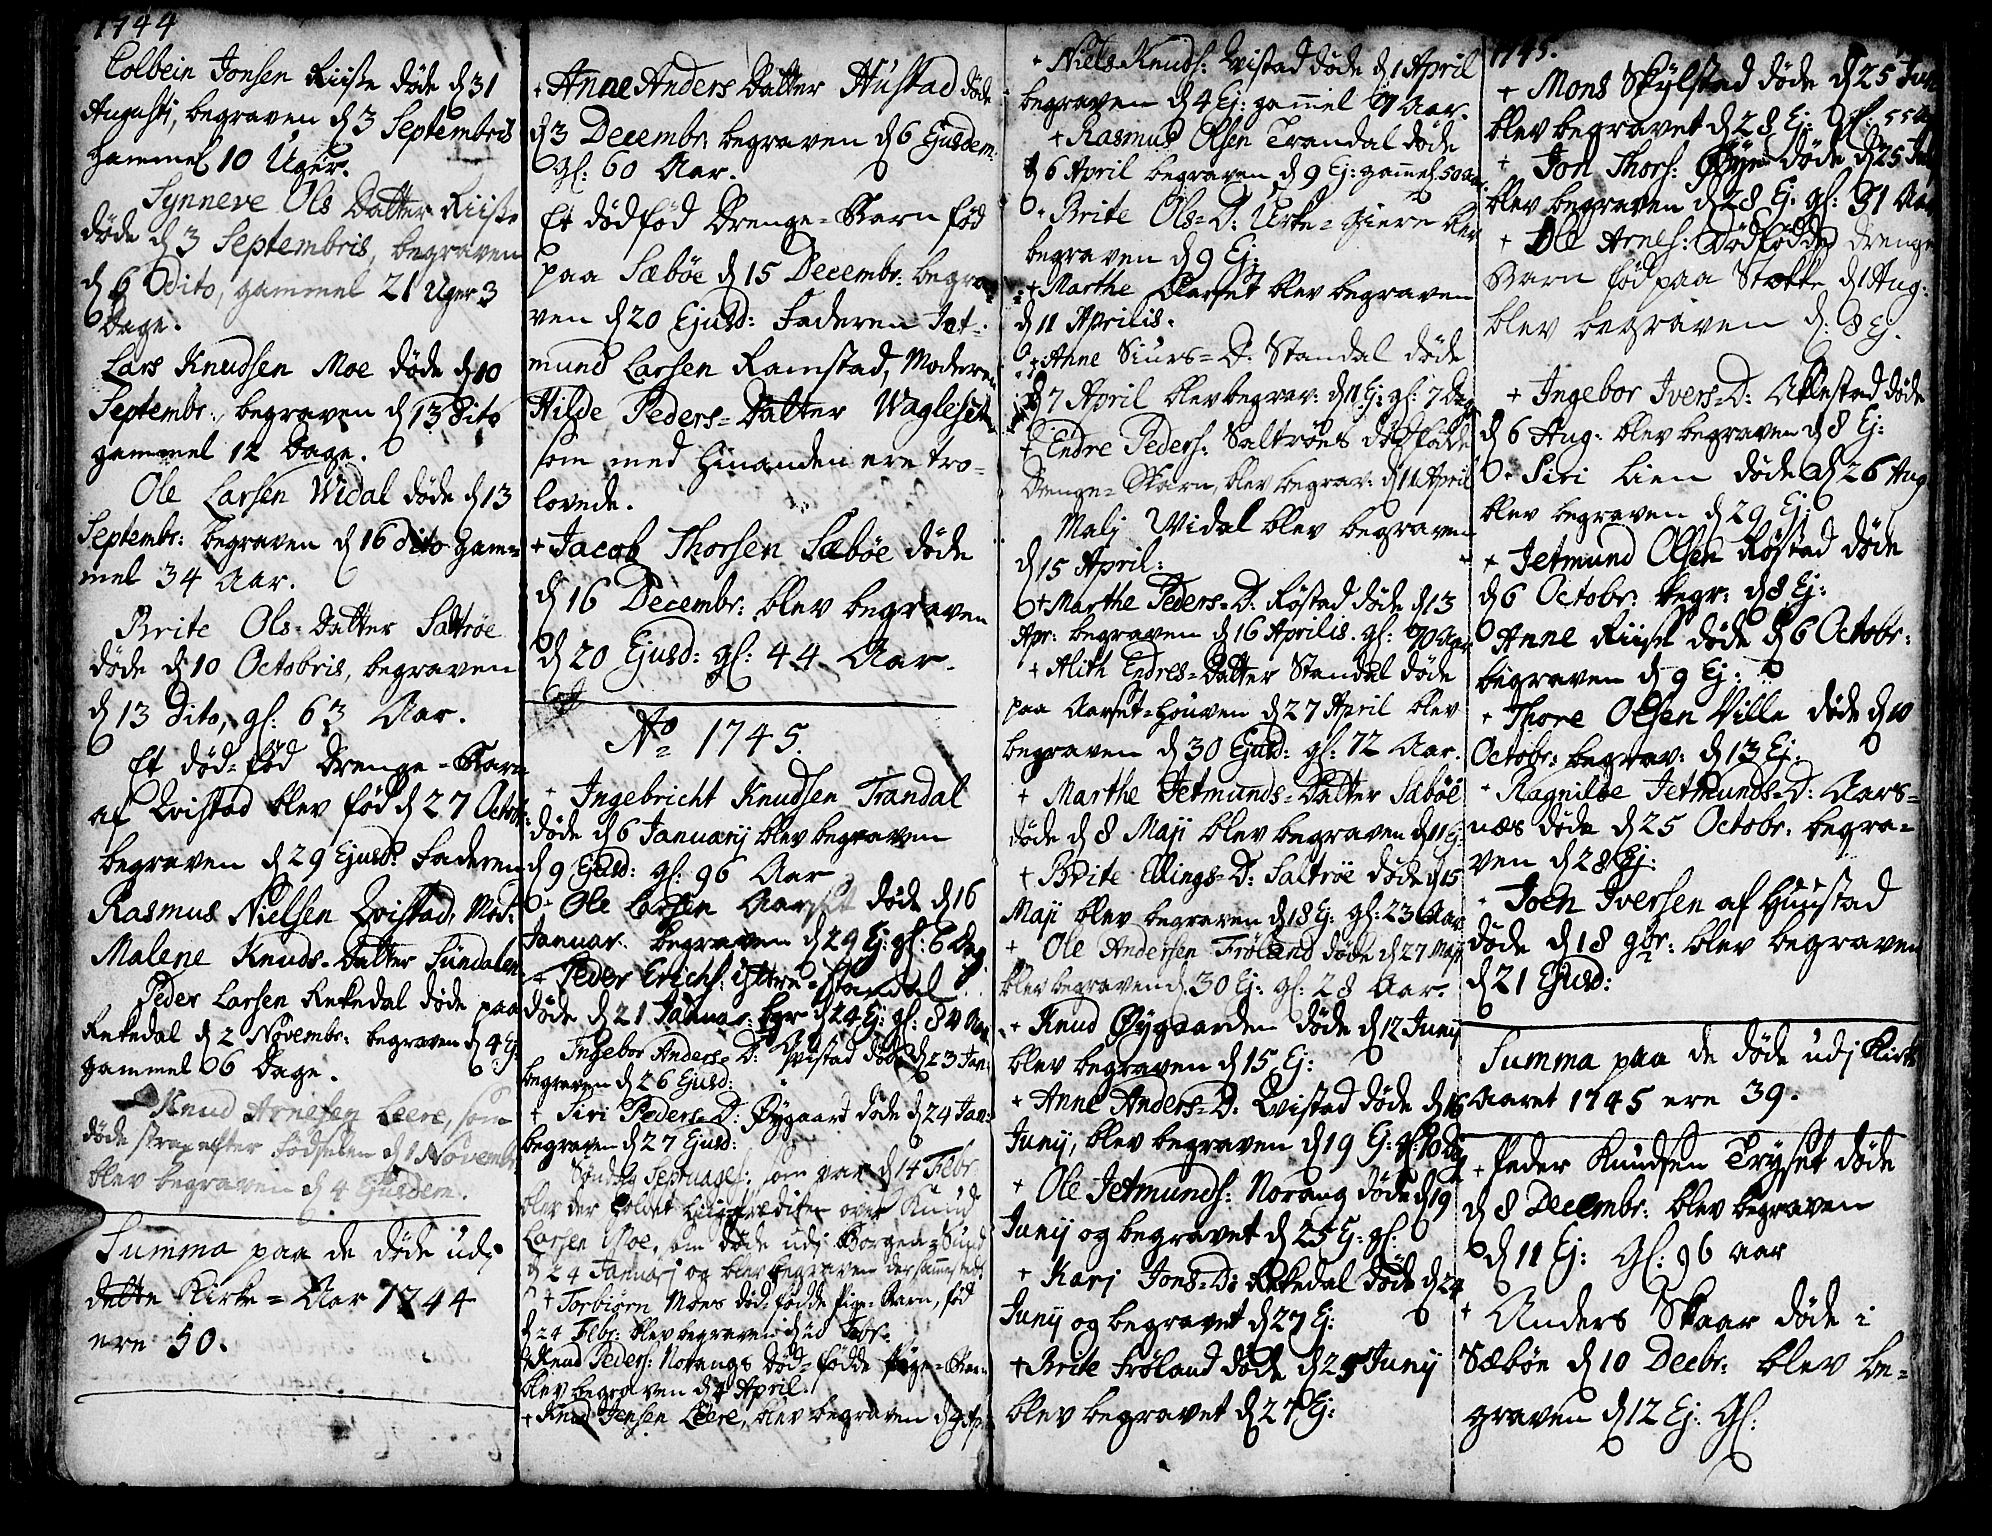 1744
Colbein Jonsen Riise døde d 31
Augusti, begraven d 3 Septembris
gammel 10 Uger.
Synneve Ols Datter Riise
døde d 3 Septembris, begraven
d 6 Dito, gammel 21 Uger 3
Dage.
Lars Knudsen Moe døde d 10
Septembr: begraven d 13 Dito
gammel 12 Dage.
Ole Larsen Widal døde d 13
Septembr: begraven d 16 Dito gam=
mel 34 Aar.
Brite Ols-Datter Saltrøe
døde d 10 Octobris, begraven
d 13 Dito, gl: 63 Aar.
Et død=fød Drenge-Barn
af Qvistad blev fød d 27 Octobr:
begraven d 29 Ejusd: Faderen
Rasmus Nielsen Qvistad, Mod:
Malene Knuds-Datter Sundalen
Peder Larsen Rekedal døde paa
Rekedal d 2 Novembr: begraven d 4 Ej
gammel 6 Dage.
Knud Arnesen Leere, som
døde strax efter Fødselen d 1 Novembr
blev begraven d 4 Ejusdem.
Summa paa de døde udj
dette Kirke=Aar 1744
ere 50.
+ Anne Anders Datter Hustad døde
d 3 Decembr: begraven d 6 Ejusdem
gl: 60 Aar.
Et dødfød Drenge=Barn fød
paa Sæbøe d 15 Decembr: begra
ven d 20 Ejusd: Faderen Jet=
mund Larsen Ramstad, Moderen
Hilde Peders=Datter Wagleset
som med hinanden ere tro=
lovede.
+ Jacob Thorsen Sæbøe døde
d 16 Decembr: blev begraven
d 20 Ejusd: gl: 44 Aar.
No 1745.
+ Ingebricht Knudsen Trandal
døde d 6 Januarij blev begraven
d 9 Ejusd: gl: 96 Aar
+ Ole Larsen Aarset døde d 16
Januar: begraven d 29 Ej: gl: 6 Dag.
+ Peder Erichs: Standal
døde d 21 Januar: bgr d 24 Ej: gl: 84 Aar
Ingebor Anders=D: Qvistad døde d 23 Jan:
begraven d 26 Ejusd:
+ Siri Peders=D: Øygaard døde d 24 Jan:
begraven d 27 Ejusd:
Søndag Septuages: som var d 14 Febr:
blev der holdet Liigprædiken over Knud
Larsen Moe, som døde udj Borgen=Sund
d 24 Januarj og blev begraven dersammesteds.
+ Torbiørn Moes død=fødde Pige=Barn, fød
d 24 Febr: blev begraven d Febr:
+ Knud Peders: Norangs død=fødde Pige=Barn
blev begraven d 4 April.
+ Knud Jensen Leere, blev begraven d 4 Apr
+ Niels Knuds: Qvistad døde d 1 April
begraven d 4 Ej: gammel Aar.
+ Rasmus Olsen Trandal døde
d 6 April begraven d 9 Ej: gammel 50 Aar.
+ Brite Ols=D: Urke=giere blev
begraven d 9 Ej:
+ Marthe Aarset blev begraven
d 11 Aprilis.
+ Anne Siurs=D: Standal døde
d 7 April blev begrav: d 11 Ej: gl: 7 Dage
+ Endre Peders: Saltrøes dødfødde
Drenge=Barn, blev begrav: d 11 April
Malj Widal blev begraven
d 15 April:
+ Marthe Peders=D: Røstad døde d 13
Apr: begraven d 16 Aprilis. gl: 70 Aar
+ Alith Endres=Datter Standal døde
paa Aarset=Houven d 27 April blev
begraven d 30 Ejusd: gl: 72 Aar.
+ Marthe Jetmunds=Datter Sæbøe
døde d 8 Maji blev begraven d 11 Ej:
+ Brite Ellings=D: Saltrøe døde d 15
Maji blev begraven d 18 Ej: gl: 23 Aar
+ Ole Andersen Frøland døde d 27 Maji
blev begraven d 30 Ej: gl: 28 Aar.
+ Knud Øygaarden døde d 12 Junij
blev begraven d 15 Ej:
+ Anne Anders=D: Qvistad døde d 16
Junij, blev begraven d 19 Ej: gl: 10 Dag
+ Ole Jetmunds: Norang døde d 19
Junij og begravet d 25 Ej: gl:
+ Karj Jons=D: Rekedal døde d 24
Junij og begravet d 27 Ej:
+ Brite Frøland døde d 25 Junij
blev begravet d 27 Ej:
1745.
+ Mons Skylstad døde d 25 Jun
blev begravet d 28 Ej: gl: 55 Aar
+ Jon Thors: Øye døde d 25 Jun
blev begraven d 28 Ej: gl: 31 Aar
+ Ole Arnes: Dødfødde Drenge
Barn fød paa Stokke d 1 Aug:
blev begraven d: 8 Ej.
+ Ingebor Ivers=D: Allestad døde
d 6 Aug: blev begraven d 8 Ej:
+ Siri Lien døde d 26 Aug
blev begraven d 29 Ej:
+ Jetmund Olsen Røstad døde
d 6 Octobr: begr: d 8 Ej:
Anne Riise døde d 6 Octobr:
begraven d 9 Ej:
+ Thore Olsen Ville døde d 10
Octobr: begrav: d 13 Ej:
+ Ragnilde Jetmunds=D: Aars=
næs døde d 25 Octobr: begra=
ven d 28 Ej:
+ Joen Iversen af Huustad
døde d 18 9br: blev begraven
d 21 Ejusd:
Summa paa de døde udj Kirke
Aaret 1745 ere 39.
+ Peder Knudsen Tryset døde
d 8 Decembr: blev begraven
d 11 Ej: gl: 96 aar
+ Anders Skaar døde i
Sæbøe d 10 Decbr: blev be=
graven d 12 Ej: gl: